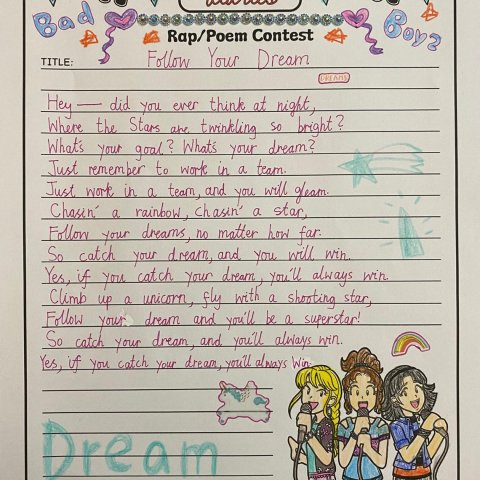 Bad Boyz
Rap/Poem Contest
TITLE: Follow Your Dream
DREAMS
Hey — did you ever think at night,
Where the Stars are twinkling so bright?
What's your goal? What's your dream?
Just remember to work in a team.
Just work in a team, and you will gleam.
Chasin' a rainbow, chasin' a star,
Follow your dreams, no matter how far.
So catch your dream, and you will win.
Yes, if you catch your dream, you'll always win.
Climb up a unicorn, fly with a shooting star,
Follow your dream and you'll be a superstar!
So catch your dream, and you'll always win.
Yes, if you catch your dream, you'll always Win.
Dream